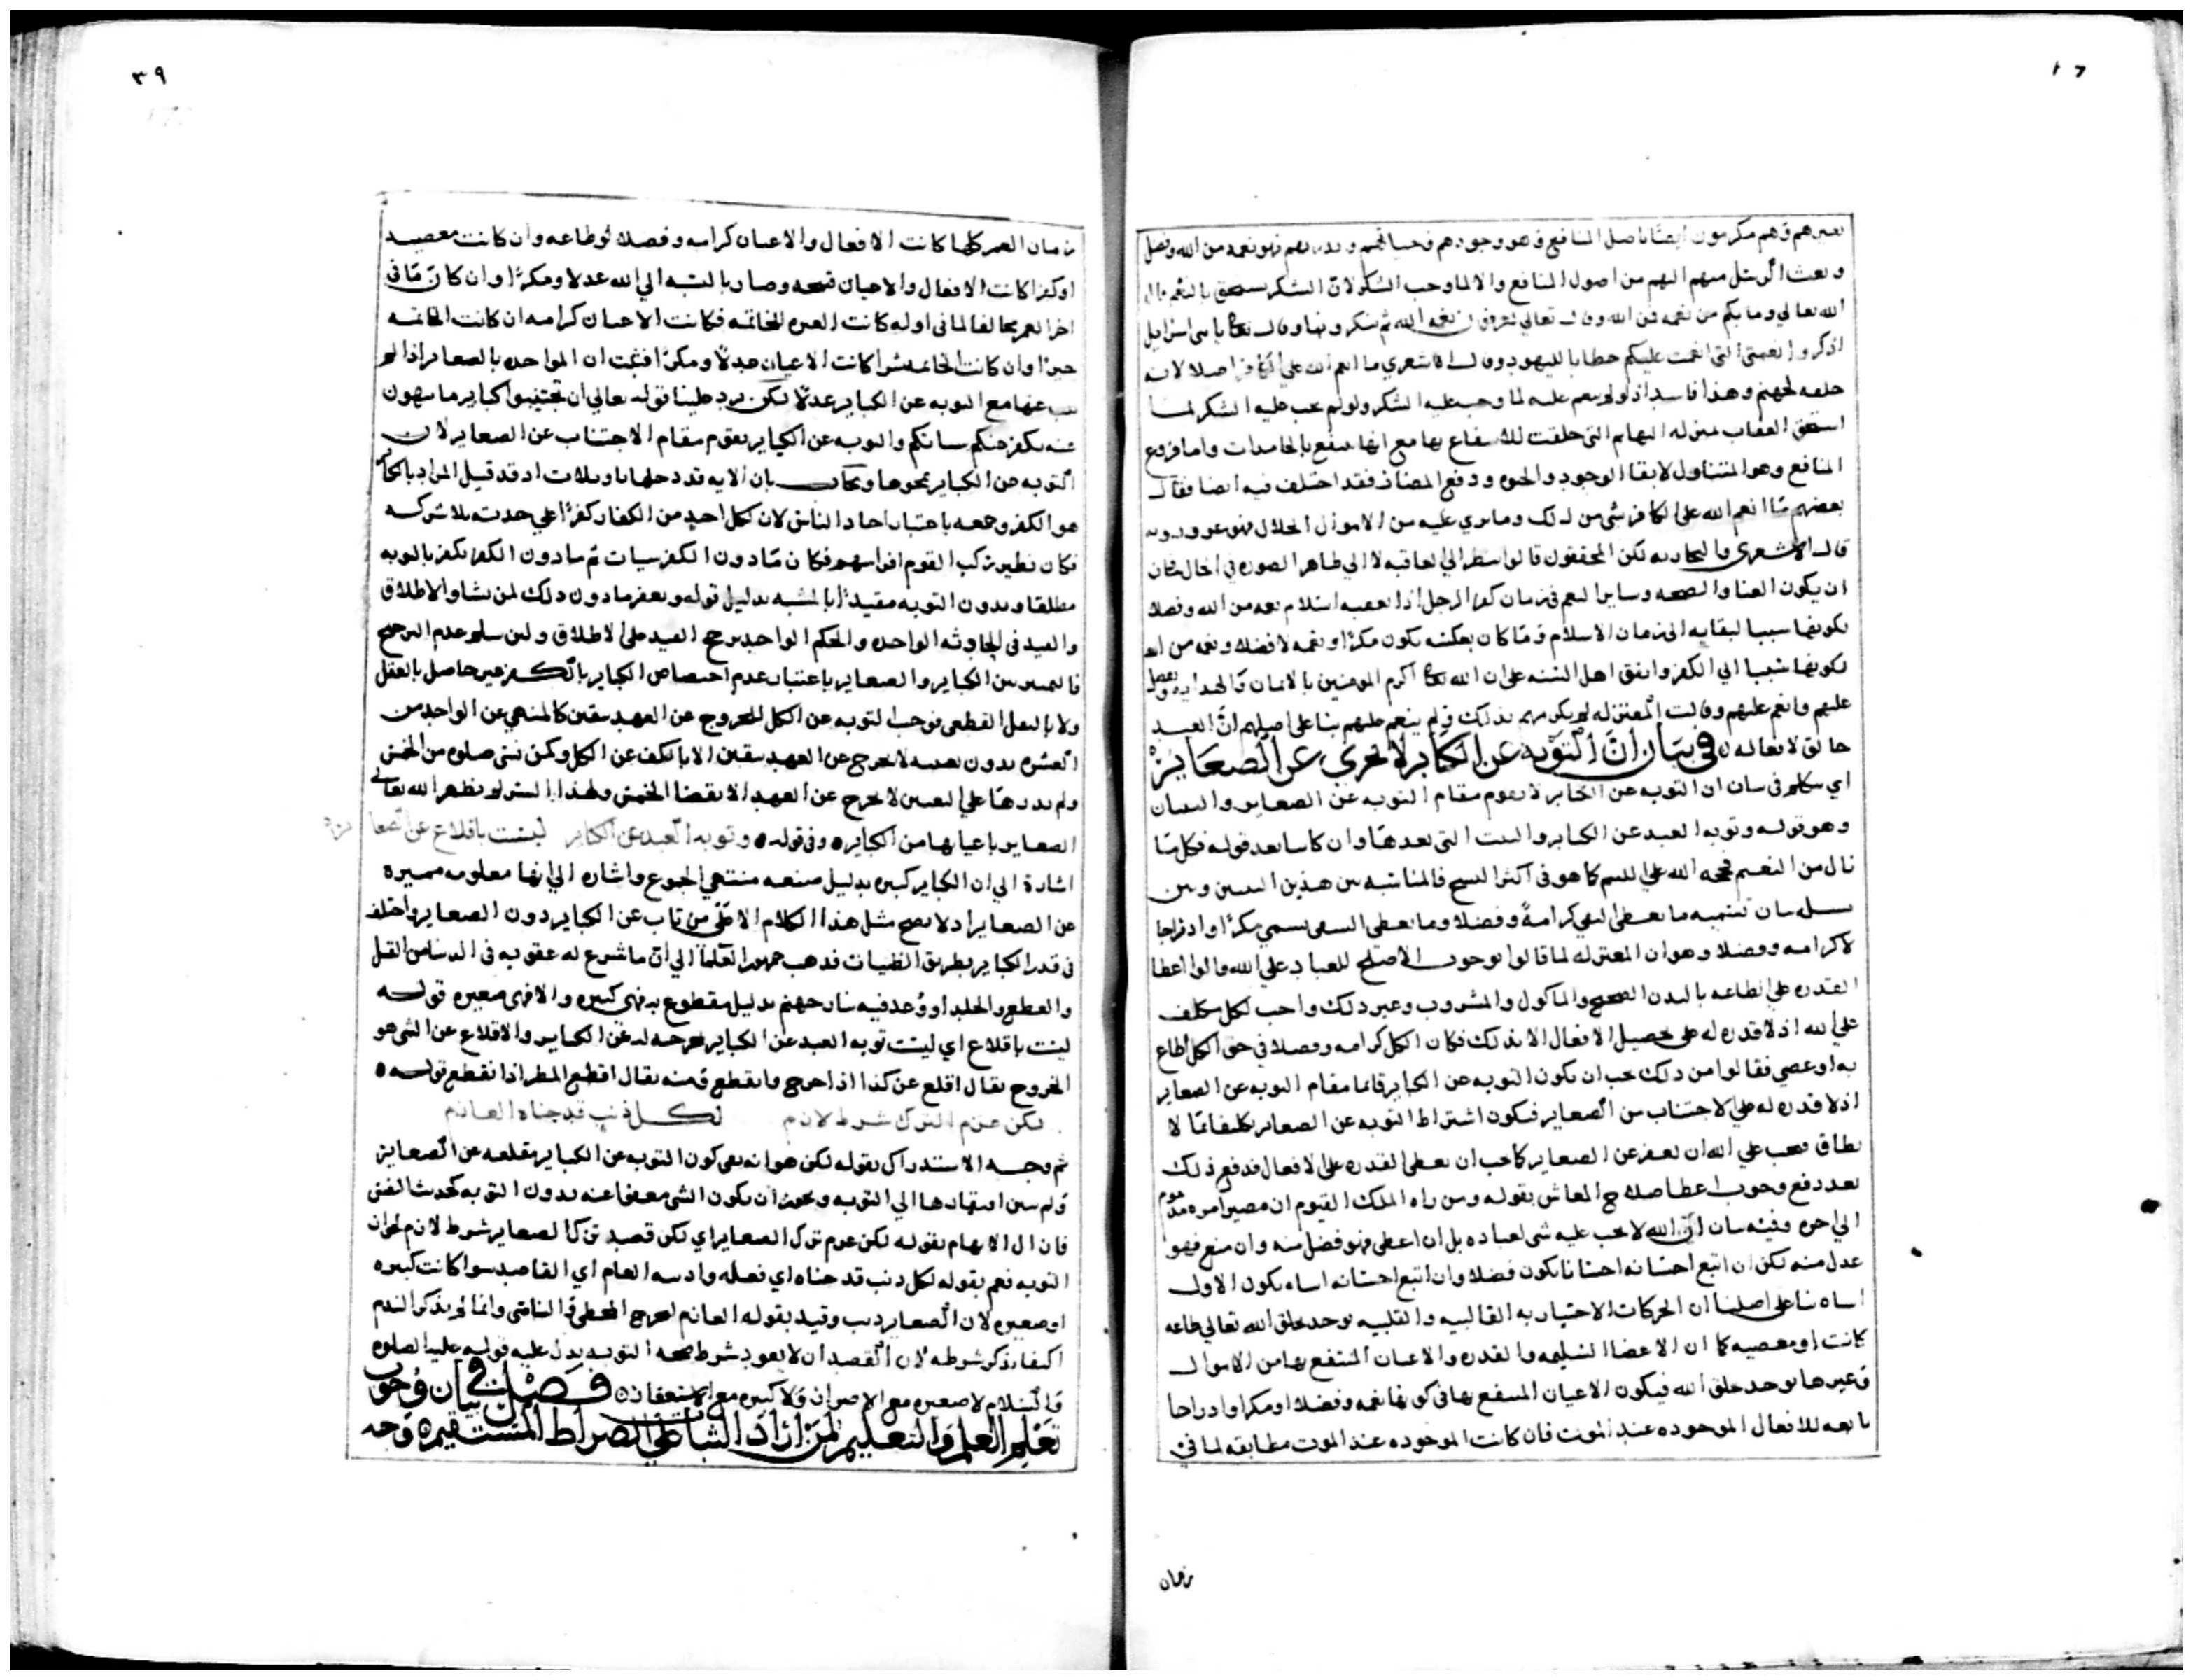 وبعث الرسل منهم اليهم من اصول المنافع والالما وجب الشكر لان الشكر يستحق بالنعم قال
الله تعالي وما بكم من نعمه فمن الله وقال تعالي يعرفون نعمه الله ثم ينكرونها وقال تعالى يا بني اسرايل
اذكروا نعمتي التي انعمت عليكم خطابا لليهود وقال الاشعري ما انعم الله علي الكافر اصلا لانه
خلقه لجهنم وهذا فاسد اذ لو لم ينعم عليه لما وجب عليه الشكر ولو لم يجب عليه الشكر لما
استحق العقاب بمنزله البهايم التي خلقت للانتفاع بها مع انها تنتفع بالجامدات واما فروع
المنافع وهو المتناول لابقا الوجود والحيوه ودفع المضار فقد اختلف فيه ايضا فقال
بعضهم ما انعم الله علي الكافر شي من ذلك وما يري عليه من الاموال الحلال فهو غرور وبه
قال الاشعري لكن المحققون قالوا ينظر الي العاقبه لا الي ظاهر الصوره في الحال فان
ان يكون الغنا والصحه وساير النعم في زمان كفر الرجل اذا تعقبه اسلام نعمه من الله وفضلا
لكونها سببا لبقايه الي زمان الاسلام وما كان بعكسه يكون مكرا ونقمه لا فضلا
لكونها سببا الي الكفر واتفق اهل السنه علي ان الله تعالى اكرم المومنين بالايمان والهدايه وتفضل
عليهم وانعم عليهم وقالت المعتزله لم يكرمهم بذلك ولم ينعم عليهم بنا علي اصلهم ان العبد
خالق لافعاله في بيان ان التوبه عن الكباير لا تجزي عن الصغاير
اي نتكلم في بيان ان التوبه عن الكباير لا تقوم مقام التوبه عن الصغاير والبيتان
وهو قوله وتوبه العبد عن الكباير والبيت التي بعدها وان كانا بعد قوله فكل ما
نال من النعيم منحه الله علي اللييم كما هو في اكثر النسخ فالمناسبه بين هذين البيتين وبين
بيان تسميه ما يعطي التقي كرامة وفضلا وما يعطي الشقي يسمي مكرا واستدراجا
لا كرامه وفضلا وهو ان المعتزله لما قالوا بوجوب الاصلح للعباد علي الله قالوا اعطا
القدره علي الطاعه بالبدن الصحيح والماكول والمشروب وغير ذلك واجب لكل مكلف
علي الله اذ لا قدره له علي تحصيل الافعال الا بذلك فكان الكل كرامه وفضلا في حق الكل اطاع
به او عصي فقالوا من ذلك يجب ان يكون التوبه عن الكباير قايما مقام التوبه عن الصغاير
اذ لا قدره له علي الاجتناب من الصغاير فيكون اشتراط التوبه عن الصغاير تكليفا بما لا
يطاق فيجب علي الله ان يعفو عن الصغاير كما يجب ان يعطي القدره علي الافعال فدفع ذلك
بعد دفع وجوب اعطا صلاح المعاش بقوله ومن راه الملك القيوم ان مصير امره مذموم
الي اخره وفيه بيان ان الله لا يجب عليه شي لعباده بل ان اعطي فهو فضل منه وان منع فهو
عدل منه لكن ان اتبع احسانه احسانا يكون فضلا وان اتبع احسانه اساه يكون الاول
اساه بنا علي اصلنا ان الحركات الاختياريه القالبيه والقلبيه توجد بخلق الله تعالي طاعه
كانت او معصيه كما ان الاعضا السليمه والقدره والاعيان المنتفع بها من الاموال
وغيرها توجد بخلق الله فيكون الاعيان المنتفع بها في كونها نعمه وفضلا او مكرا وادراجا
تابعه للافعال الموجوده عند الموت فان كانت الموجوده عند الموت مطابقه لما في
زمان
٣٩
زمان العمر كلها كانت الافعال والاعيان كرامه وفضلا لو طاعه وان كانت معصيه
او كفرا كانت الافعال والاعيان قبيحه وصار بالنسبه الي الله عدلا ومكرا وان كان ما في
اخر العمر مخالفا لما في اوله كانت العبره للخاتمه فكانت الاعيان كرامه ان كانت الخاتمه
خيرا وان كانت الخاتمه شرا كانت الاعيان عدلا ومكرا فثبت ان المواخده بالصغاير اذا لم
يتب عنها مع التوبه عن الكباير عدلا لكن يرد علينا قوله تعالي ان تجتنبوا كباير ما تنهون
عنه نكفر عنكم سياتكم والتوبه عن الكباير تقوم مقام الاجتناب عن الصغاير لان
التوبه عن الكباير تمحوها ويجاب بان الايه قد دخلها تاويلات اذ قد قيل المراد بالكباير
هو الكفر وجمعه باعتبار احاد الناس لان لكل احد من الكفار كفرا علي حدته بلا شركه
فكان نظير ركب القوم افراسهم فكان ما دون الكفر سيات ثم ما دون الكفر يكفر بالتوبه
مطلقا وبدون التوبه مقيدا بالمشيه بدليل قوله ويغفر ما دون ذلك لمن يشا والاطلاق
والقيد في الحادثه الواحده والحكم الواحد يرجح القيد علي الاطلاق ولين سلم عدم الترجيح
فالتمييز بين الكباير والصغاير باعتبار عدم اختصاص الكباير بالكفر غير حاصل بالعقل
ولا بالنقل القطعي فوجب التوبه عن الكل للخروج عن العهده بيقين كالمنهي عن الواحد من
العشره بدون تعيينه لا يخرج عن العهده بيقين الا بالكف عن الكل وكمن نسي صلوه من الخمس
ولم يدرها علي التعيين لا يخرج عن العهده الا بقضا الخمس ولهذا السر لم يظهر الله تعالي
الصغاير باعيانها من الكباير وفي قوله وتوبه العبد عن الكباير ليست باقلاع عن الصغاير
اشارة الي ان الكباير كبيره بدليل صيغه منتهي الجموع واشاره الي انها معلومه مميزه
عن الصغاير اذ لا يصح مثل هذا الكلام الا فيمن تاب عن الكباير دون الصغاير واختلف
في قدر الكباير بطريق الظنيات فذهب جمهور العلما الي ان ما شرع له عقوبه في الدنيا من القتل
والقطع والجلد او وعد فيه نار جهنم بدليل مقطوع به فهي كبيره والا فهي صغيره قوله
ليست باقلاع اي ليست توبه العبد عن الكباير مخرجه له عن الكباير والاقلاع عن الشي هو
الخروج يقال اقلع عن كذا اذا خرج وانقطع ومنه يقال اقلع المطر اذا انقطع قوله
لكن عزم الترك شرط لازم لكل ذنب قد جناه العازم
ثم وجه الاستدراك بقوله لكن هو انه نفي كون التوبه عن الكباير مقلعه عن الصغاير
ولم يبين افتقارها الي التوبه ويجوز ان يكون الشي معفوا عنه بدون التوبه كحدث النفس
فازال الابهام بقوله لكن عزم ترك الصغاير اي لكن قصد ترك الصغاير شرط لازم لجواز
التوبه نعم بقوله لكل ذنب قد جناه اي فعله العازم اي القاصد سوا كانت كبيره
او صغيره لان الصغاير ذنب وقيد بقوله العازم ليخرج المخطي والناسي وانما لم يذكر الندم
اكتفا بذكر شرطه لان القصد ان لا يعود شرط صحه التوبه يدل عليه قوله عليه الصلوه
والسلام لا صغيره مع الاصرار ولا كبيره مع الاستغفار فصل في بيان وجوب
تعلم العلم والتعليم لمن اراد الثبات علي الصراط المستقيم وجه